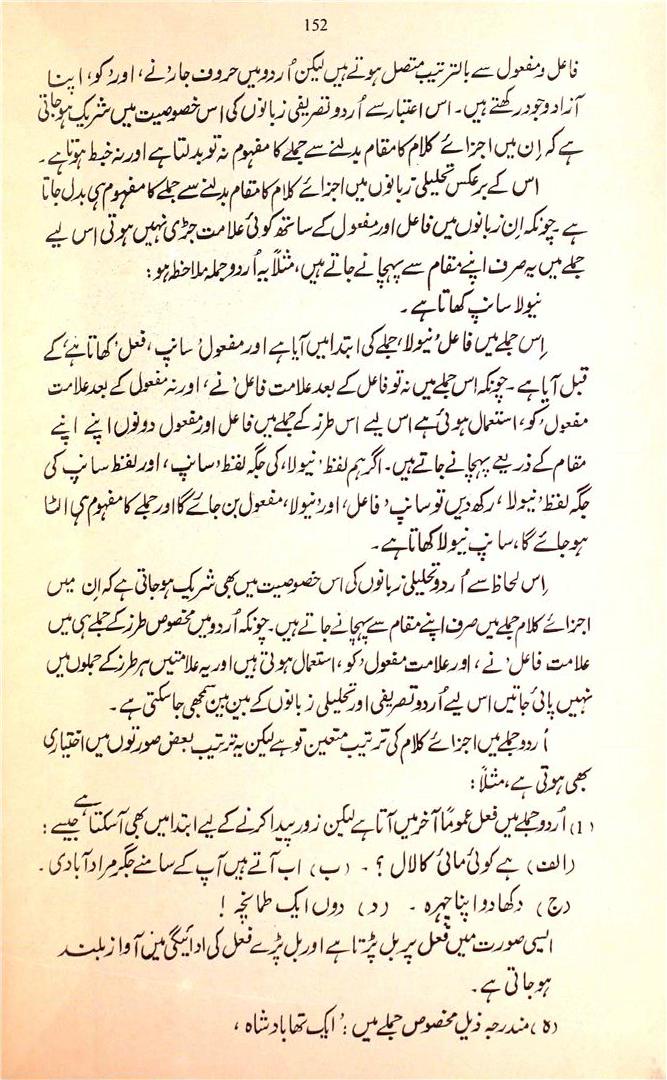 152
فاعل و مفعول سے بالترتیب متصل ہوتے ہیں لیکن اُردو میں حروف جار ’نے، اور ’کو، اپنا
آزاد وجود رکھتے ہیں۔ اس اعتبار سے اُردو تصریفی زبانوں کی اس خصوصیت میں شریک ہو جاتی
ہے کہ اِن میں اجزائے کلام کا مقام بدلنے سے جملے کا مفہوم نہ تو بدلتا ہے اور نہ خبط ہوتا ہے۔
اس کے برعکس تحلیلی زبانوں میں اجزائے کلام کا مقام بدلنے سے جملے کا مفہوم ہی بدل جاتا
ہے۔ چونکہ اِن زبانوں میں فاعل اور مفعول کے ساتھ کوئی علامت جڑی نہیں ہوتی اس لیے
جملے میں یہ صرف اپنے مقام سے پہچانے جاتے ہیں، مثلاً یہ اُردو جملہ ملاحظہ ہو:
نیولا سانپ کھاتا ہے۔
اِس جملے میں فاعل ’نیولا، جملے کی ابتدا میں آیا ہے اور مفعول ’سانپ، فعل ’کھاتا ہے‘ کے
قبل آیا ہے۔ چونکہ اس جملے میں نہ تو فاعل کے بعد علامت فاعل ’نے، اور نہ مفعول کے بعد علامت
مفعول ’کو، استعمال ہوئی ہے اس لیے اس طرز کے جملے میں فاعل اور مفعول دونوں اپنے اپنے
مقام کے ذریعے پہچانے جاتے ہیں۔ اگر ہم لفظ ’نیولا، کی جگہ لفظ ’سانپ، اور لفظ سانپ کی
جگہ لفظ ’نیولا، رکھ دیں تو سانپ ’فاعل، اور ’نیولا، مفعول بن جائے گا اور جملے کا مفہوم ہی الٹا
ہو جائے گا، سانپ نیولا کھاتا ہے۔
اِس لحاظ سے اُردو تحلیلی زبانوں کی اس خصوصیت میں بھی شریک ہو جاتی ہے کہ اِن میں
اجزائے کلام جملے میں صرف اپنے مقام سے پہچانے جاتے ہیں۔ چونکہ اُردو میں مخصوص طرز کے جملے ہی میں
علامت فاعل ’نے، اور علامت مفعول ’کو، استعمال ہوتی ہیں اور یہ علامتیں ہر طرز کے جملوں میں
نہیں پائی جاتیں اس لیے اُردو تصریفی اور تحلیلی زبانوں کے بین بین سمجھی جا سکتی ہے۔
اُردو جملے میں اجزائے کلام کی ترتیب متعین تو ہے لیکن یہ ترتیب بعض صورتوں میں اختیاری
بھی ہوتی ہے، مثلاً:
(1) اُردو جملے میں فعل عموماً آخر میں آتا ہے لیکن زور پیدا کرنے کے لیے ابتدا میں بھی آ سکتا ہے جیسے:
(الف) ہے کوئی مائی کا لال؟۔ (ب) اب آتے ہیں آپ کے سامنے جگر مراد آبادی۔
(ج) دکھا دو اپنا چہرہ۔ (د) دوں ایک طمانچہ!
ایسی صورت میں فعل پر بل پڑتا ہے اور بل پڑے فعل کی ادائیگی میں آواز بلند
ہو جاتی ہے۔
(ہ) مندرجہ ذیل مخصوص جملے میں: ’ایک تھا بادشاہ،